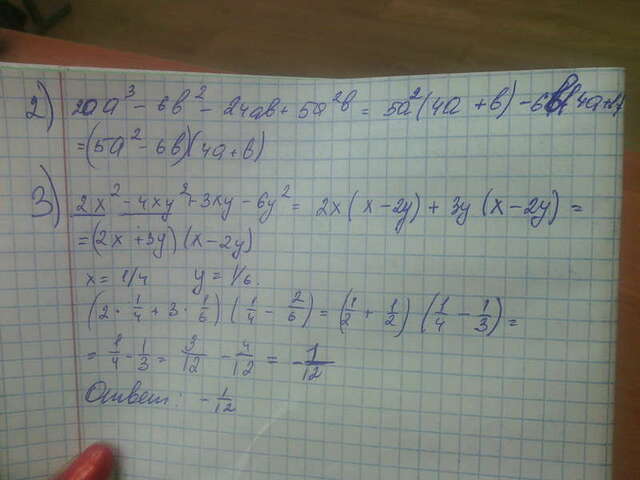 2) 20a³ - 6b² - 24ab + 5a²b = 5a²(4a + b) - 6b(4a+b)
= (5a² - 6b)(4a + b)
3) 2x² - 4xy² + 3xy - 6y² = 2x(x - 2y) + 3y(x - 2y) =
= (2x + 3y)(x - 2y)
x = 1/4 y = 1/6.
(2 · 1/4 + 3 · 1/6)(1/4 - 2/6) = (1/2 + 1/2)(1/4 - 1/3) =
= 1/4 - 1/3 = 3/12 - 4/12 = - 1/12
Ответ: - 1/12